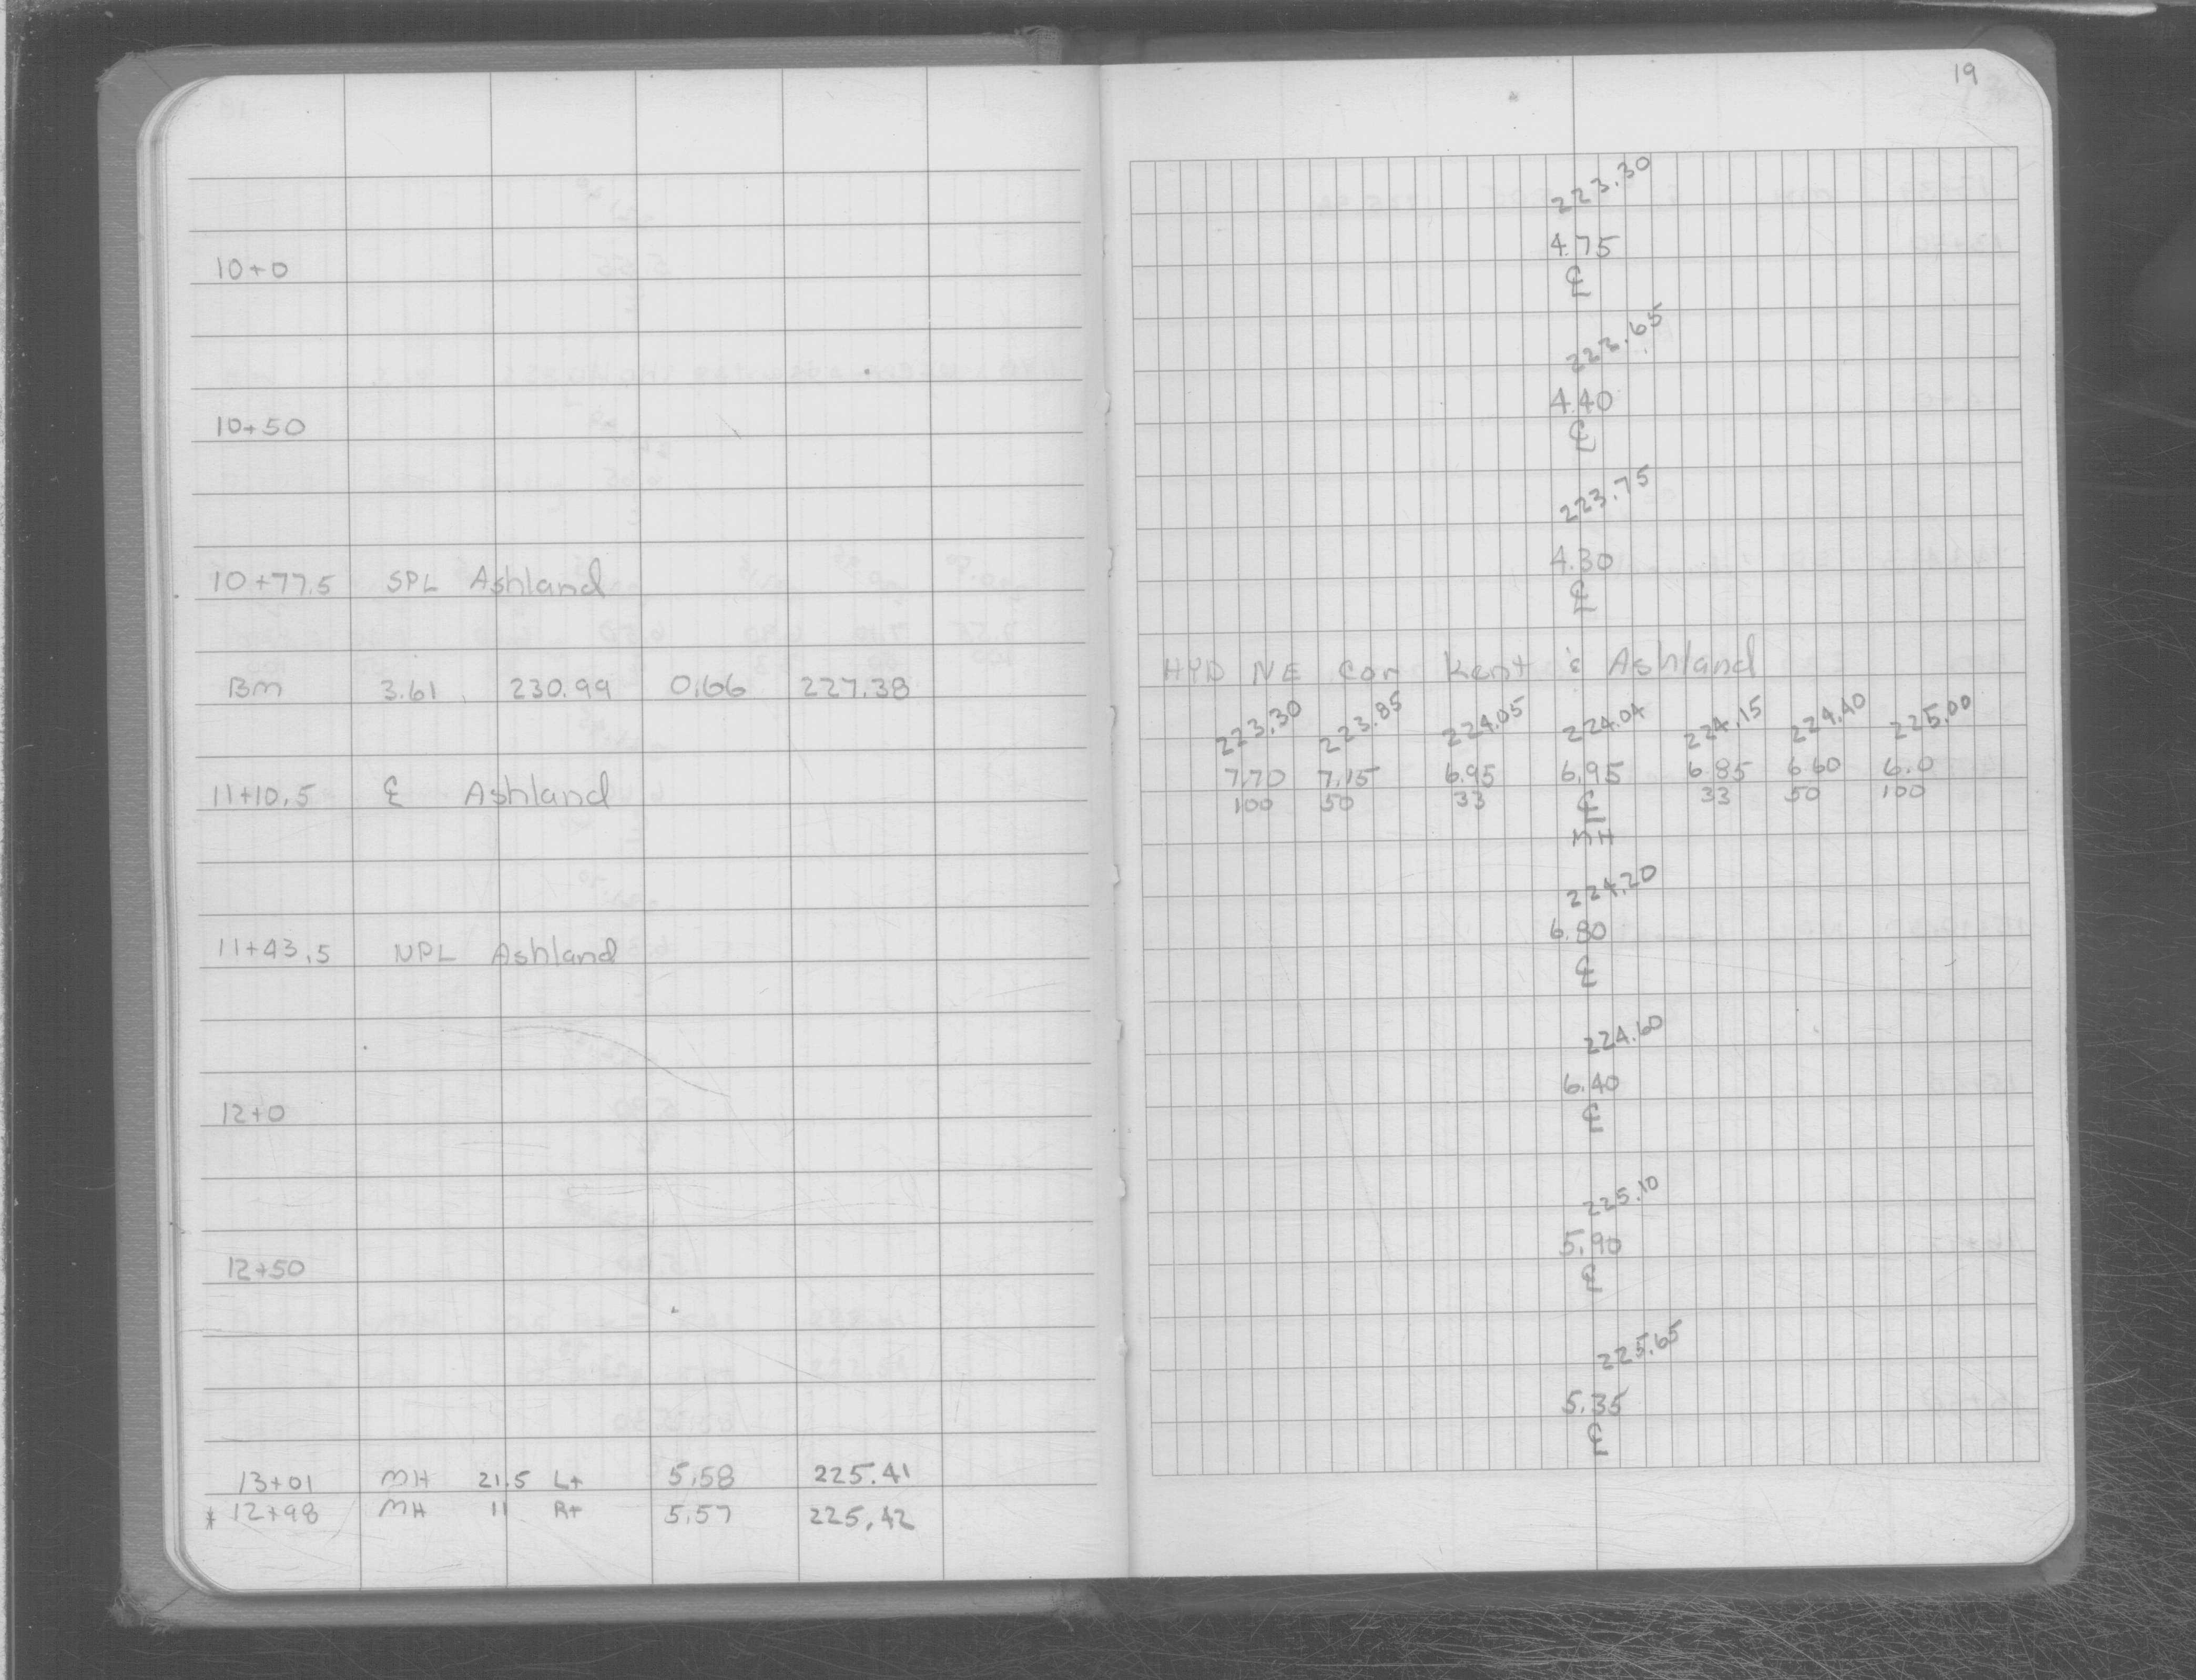 19
223.30
10+0 4.75
℄
223.65
10+50 4.40
℄
223.75
10+77.5 SPL Ashland 4.30
℄
HYD NE Cor Kent & Ashland
BM 3.61 230.99 0.66 227.38
223.30 223.85 224.05 224.04 224.15 224.40 225.00
11+10.5 ℄ Ashland 7.70 7.15 6.95 6.95 6.85 6.60 6.0
100 50 33 ℄ 33 50 100
MH
224.20
11+43.5 NPL Ashland 6.80
℄
224.60
12+0 6.40
℄
225.10
12+50 5.90
℄
225.65
5.35
℄
13+01 MH 21.5 Lt 5.58 225.41
* 12+98 MH 11 Rt 5.57 225.42